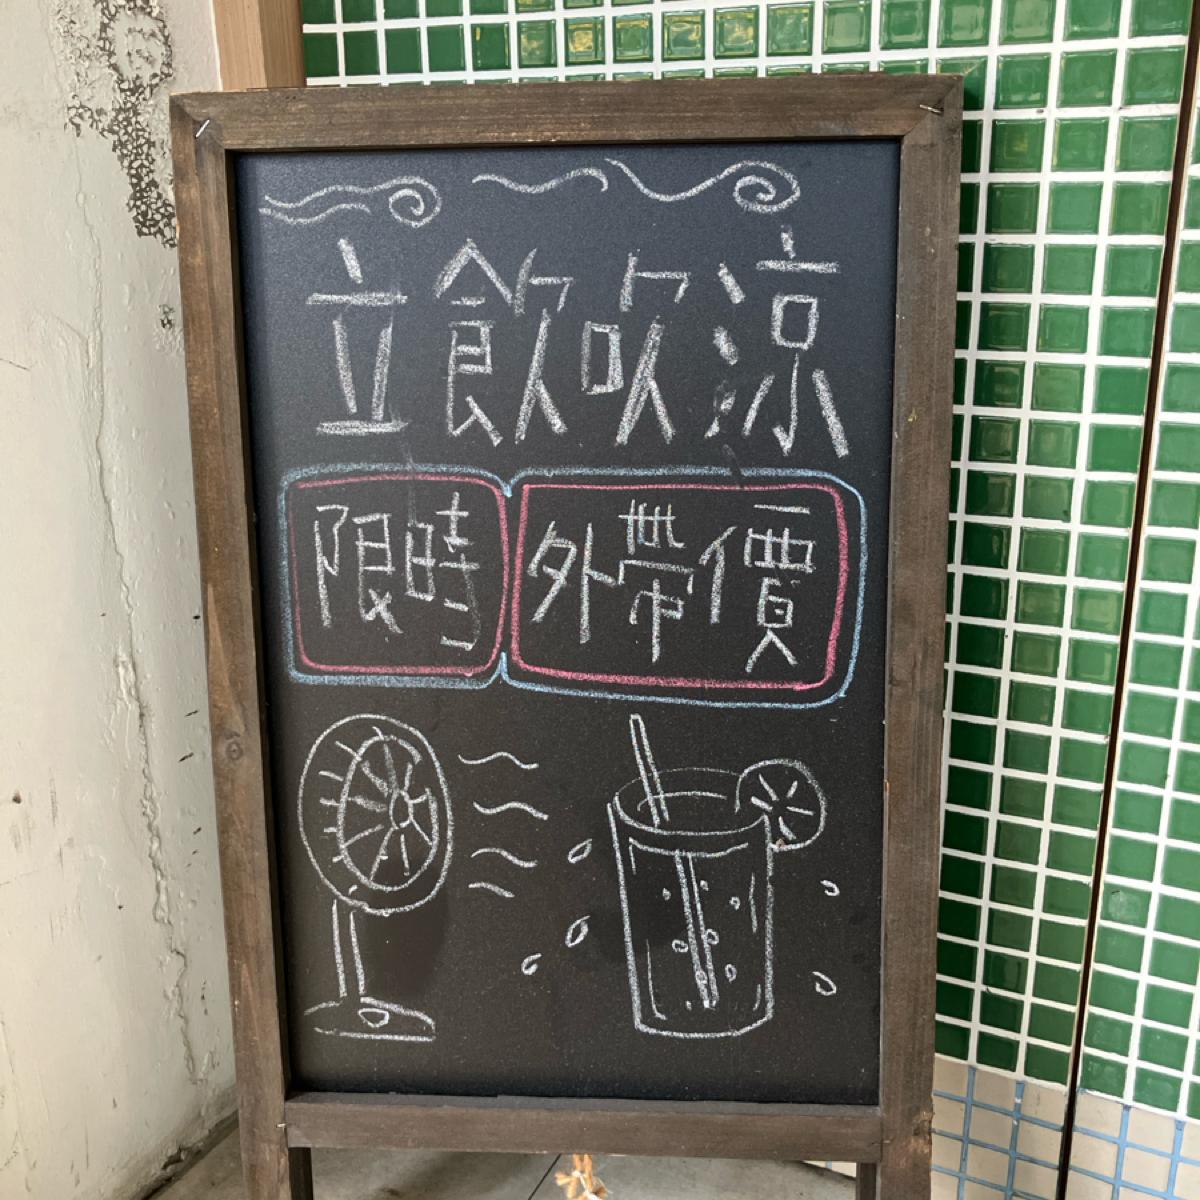 立飲吹涼
限時 外帶價